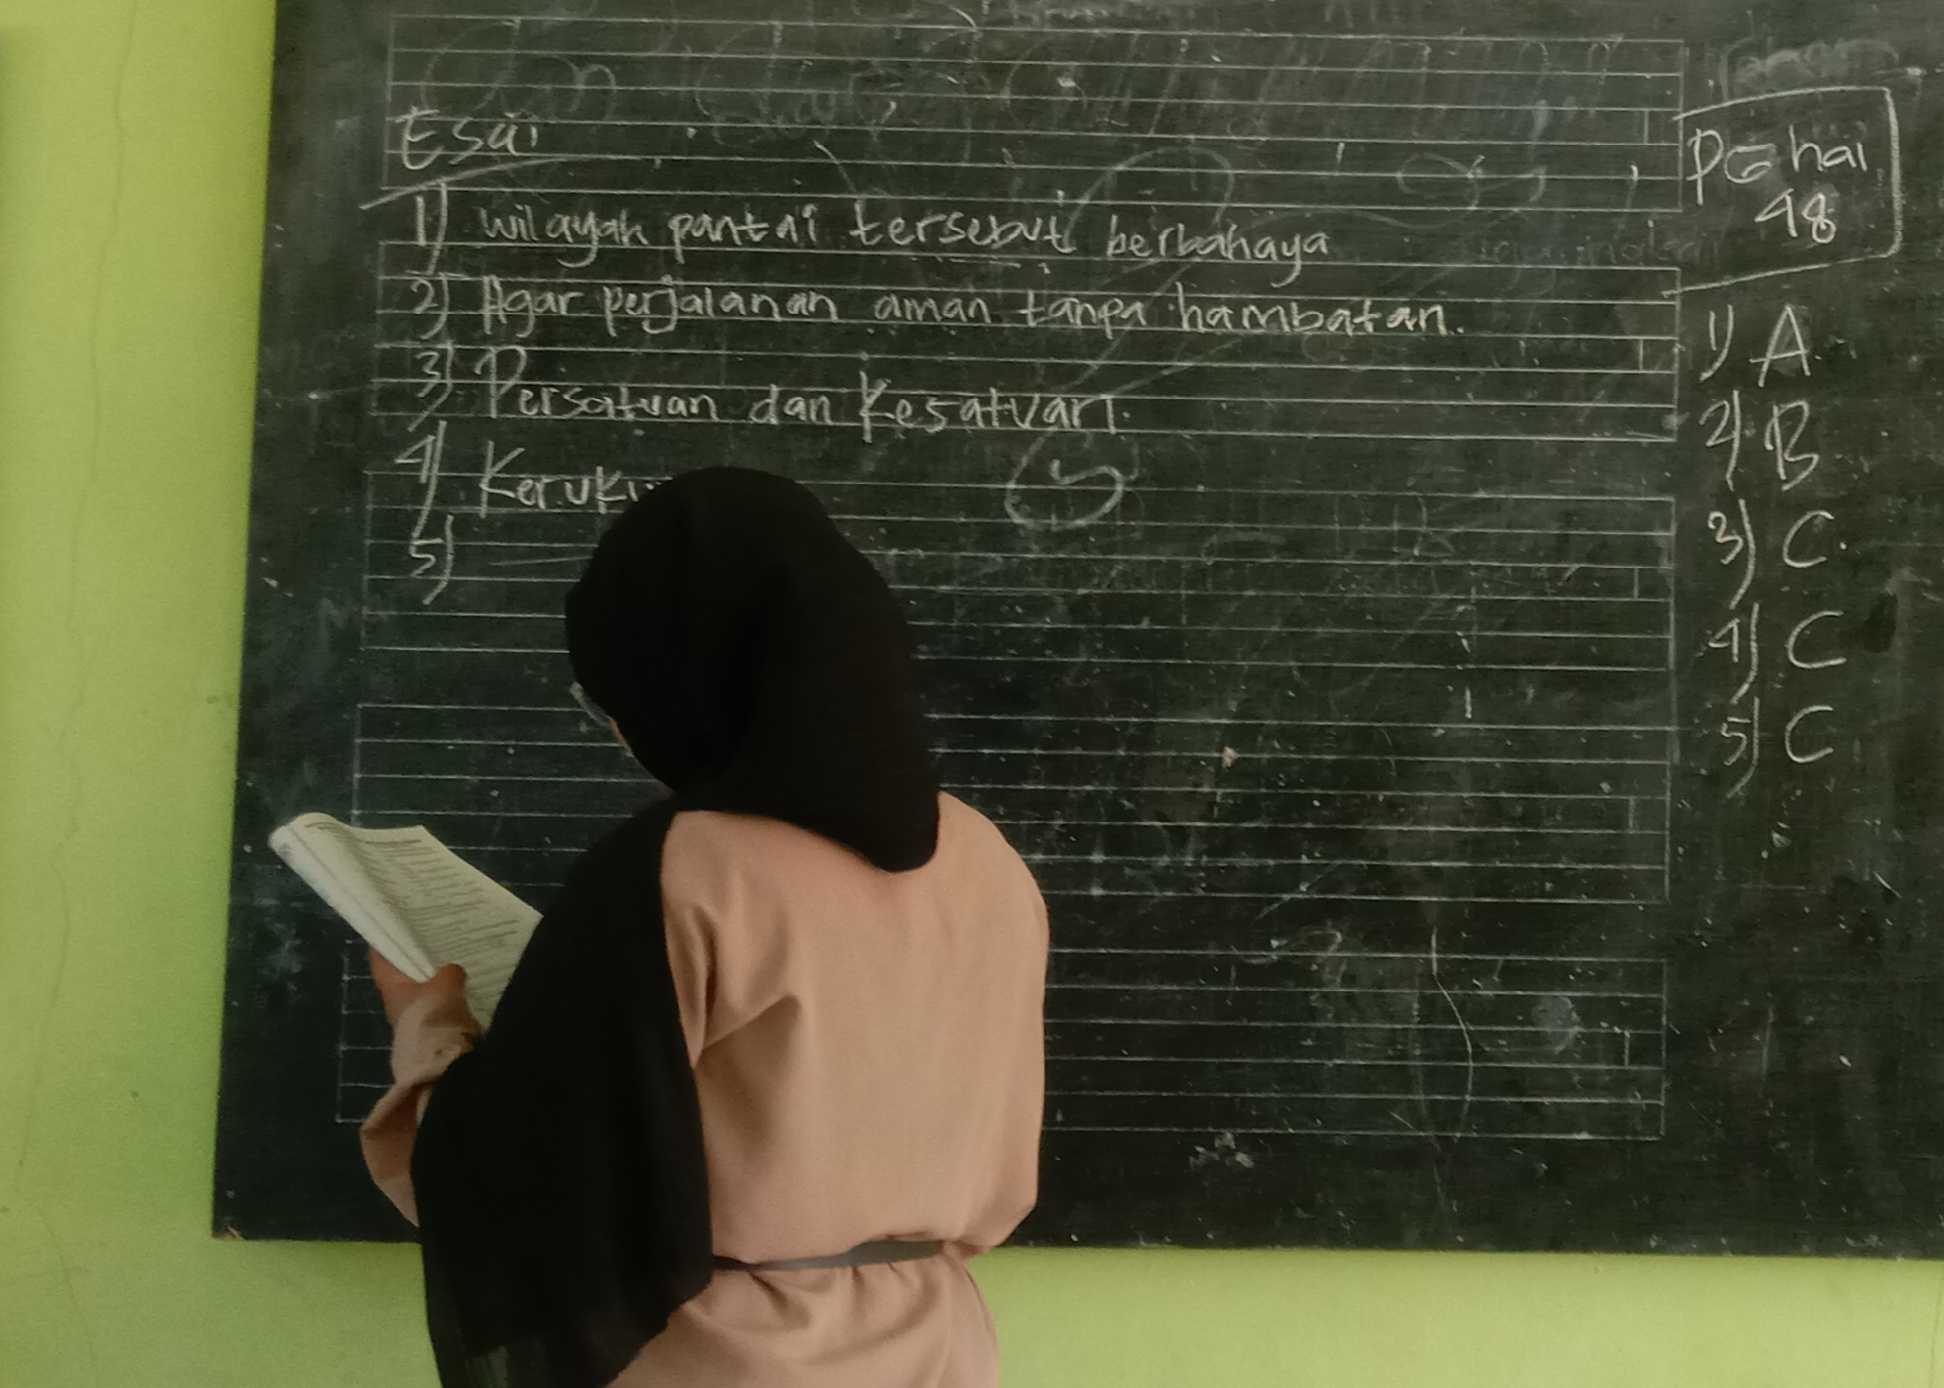 Esai
1) wilayah pantai tersebut berbahaya
2) Agar perjalanan aman tanpa hambatan.
3) Persatuan dan Kesatuan.
4)
5)
PG hal
48
1) A.
2) B
3) C.
4) C
5) C